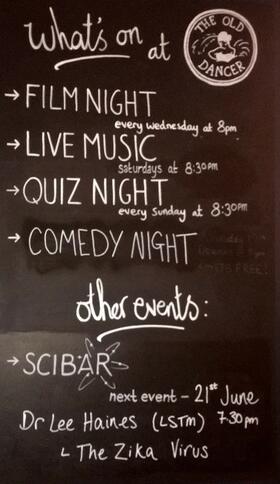 What's on at
THE OLD DANCER
→ FILM NIGHT
every wednesday at 8pm
→ LIVE MUSIC
saturdays at 8:30pm
→ QUIZ NIGHT
every Sunday at 8:30pm
→ COMEDY NIGHT
other events:
→ SCIBAR
next event - 21st June
Dr Lee Haines (LSTM) 7.30pm
↳ The Zika Virus